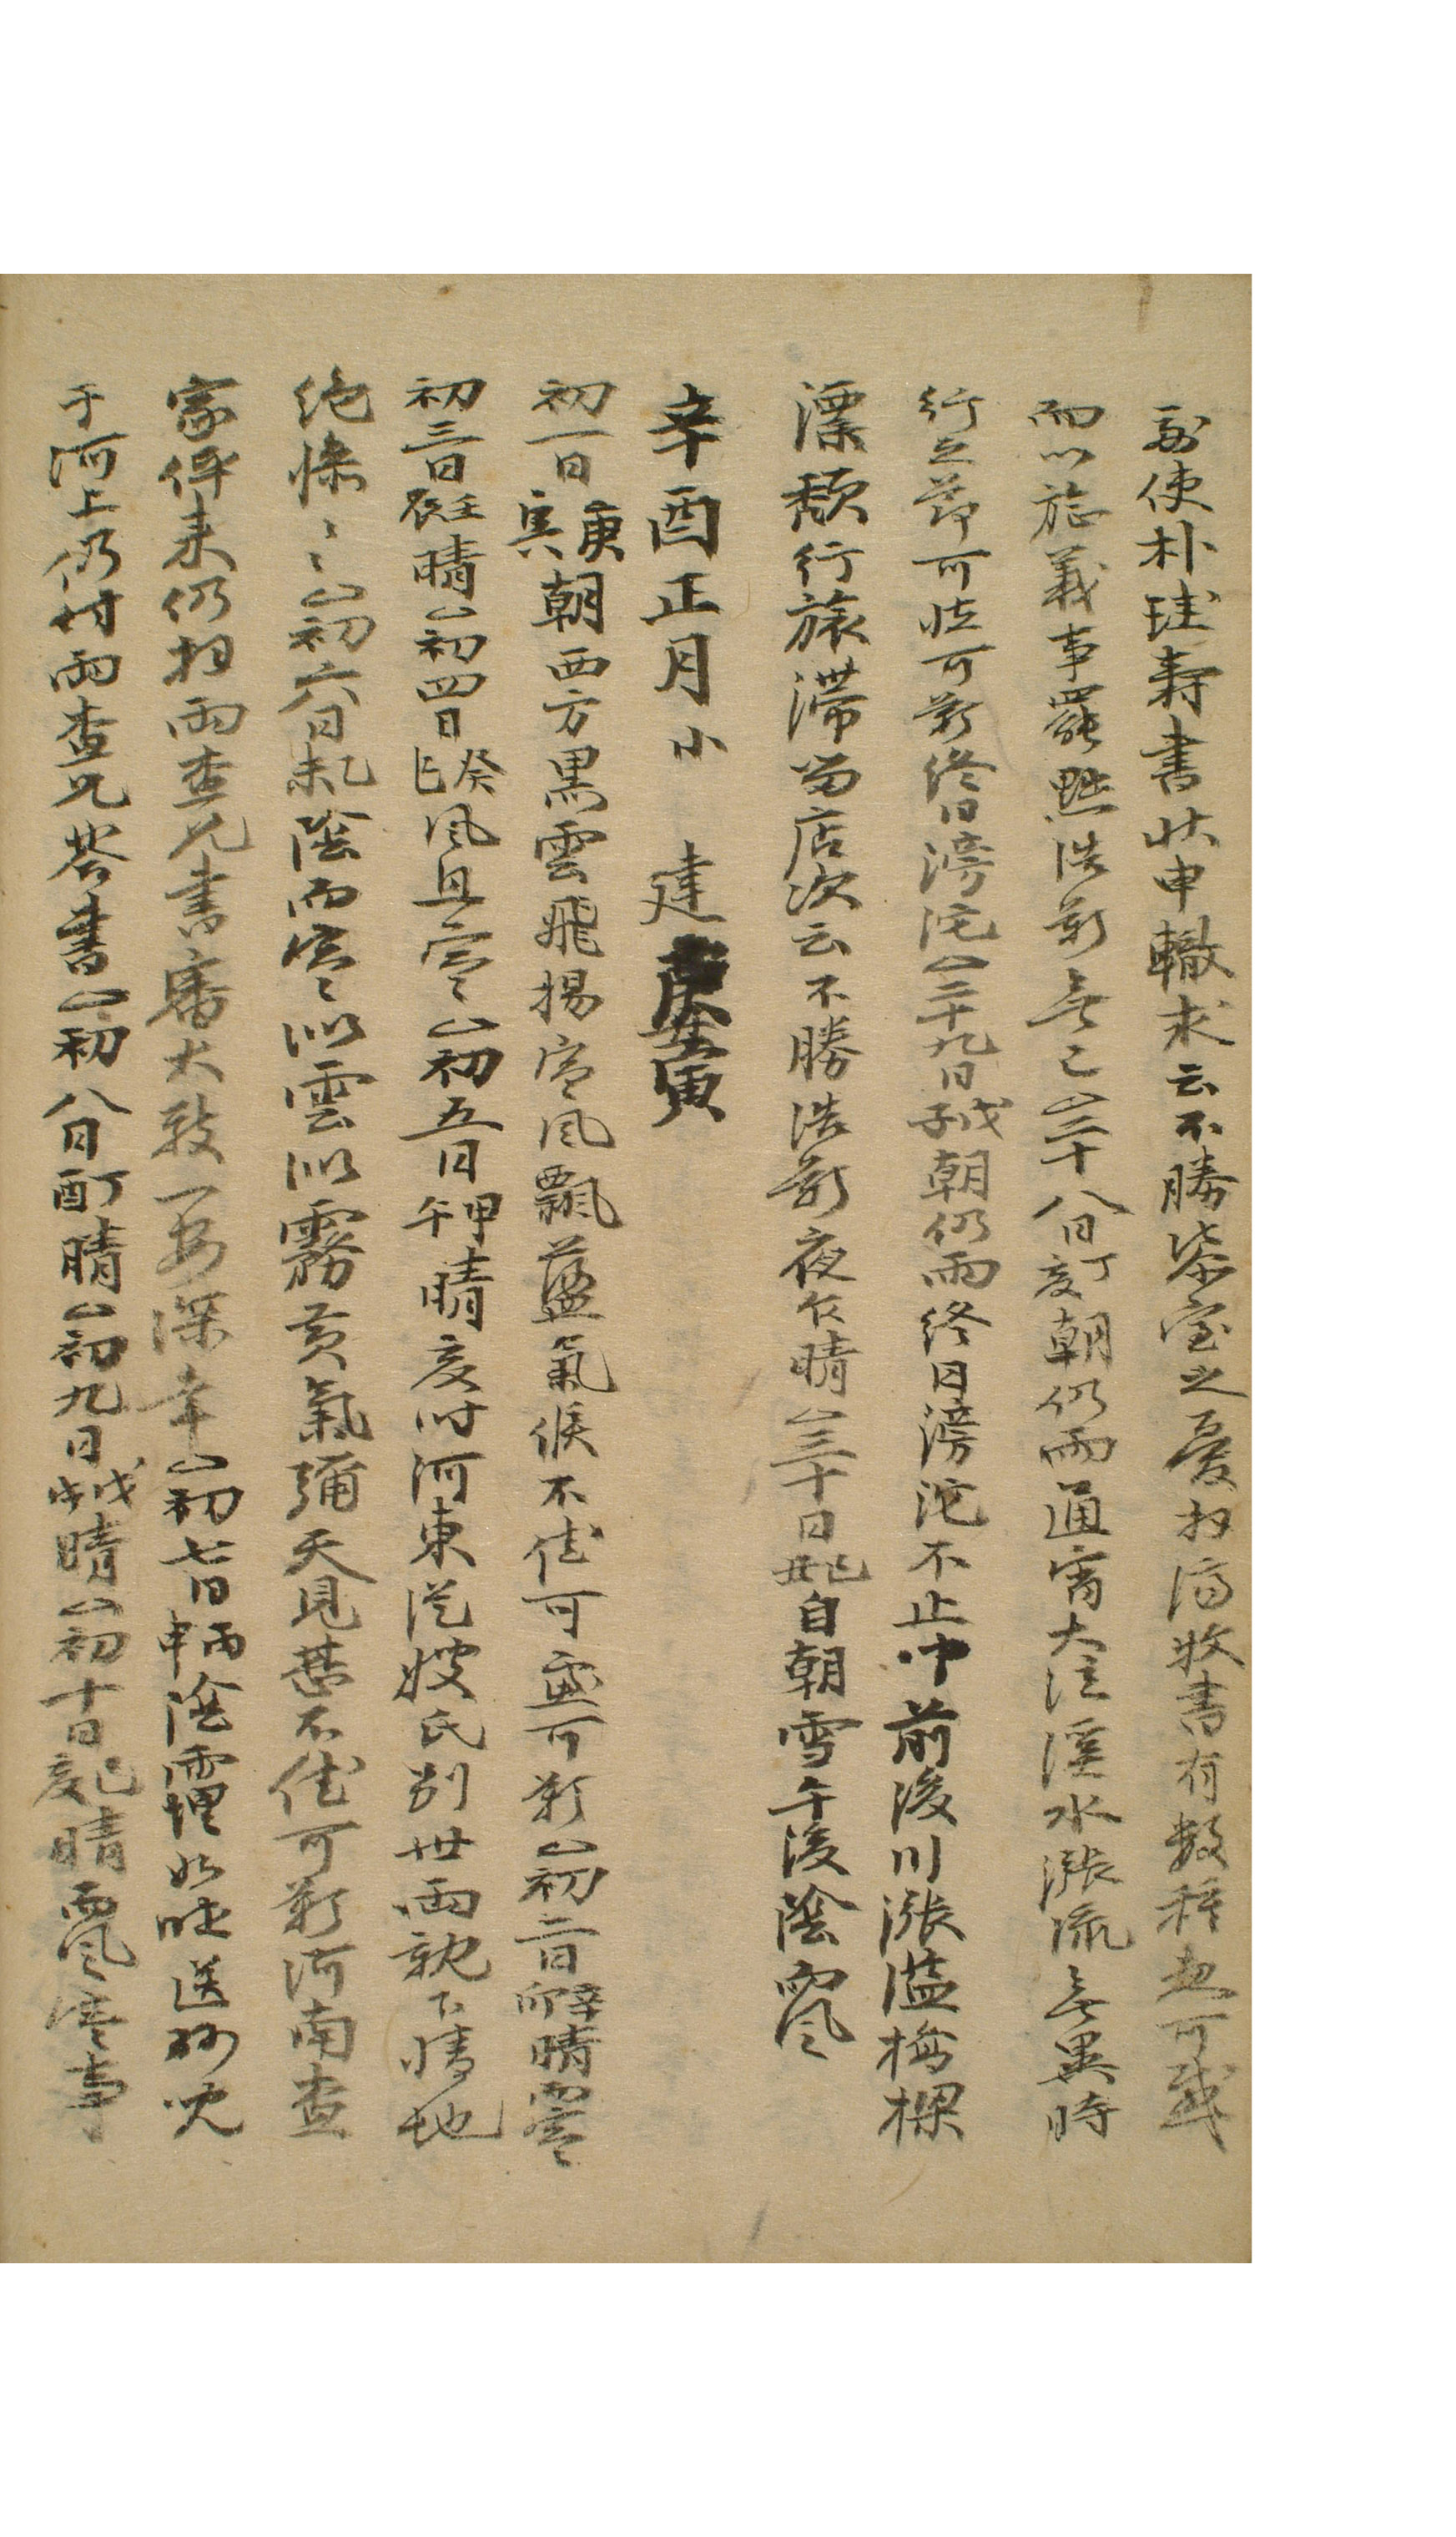 副使朴珪壽書狀申轍求云不勝漆室之憂扣滿收書有數種也可感
而以旋義事罷黜浩歎無已△二十八日丁亥朝仍雨通宵大注溪水漲流無異時
行之節可怪可歎終日滂沱△二十九日戊子朝仍雨終日滂沱不止中前後川漲溢橋樑
漂頹行旅滯留店次云不勝浩歎夜仄晴△三十日己丑自朝雪午後陰風
辛酉正月小 建庚寅
初一日庚寅朝西方黑雲飛揚寒風飄蕩氣候不佳可亟可歎△初二日辛卯晴寒
初三日壬辰晴△初四日癸巳風且寒△初五日甲午晴亥時河東從嫂氏別世兩親下情地
絶慘〻△初六日乙未陰而寒似雲似霧黃氣彌天見甚不佳可歎河南查
家伻来仍拍兩查兄書審大致一安深幸△初七日丙申陰霾如昨送砂兒
于河上仍付兩查兄答書△初八日丁酉晴△初九日戊戌晴△初十日己亥晴風寒事